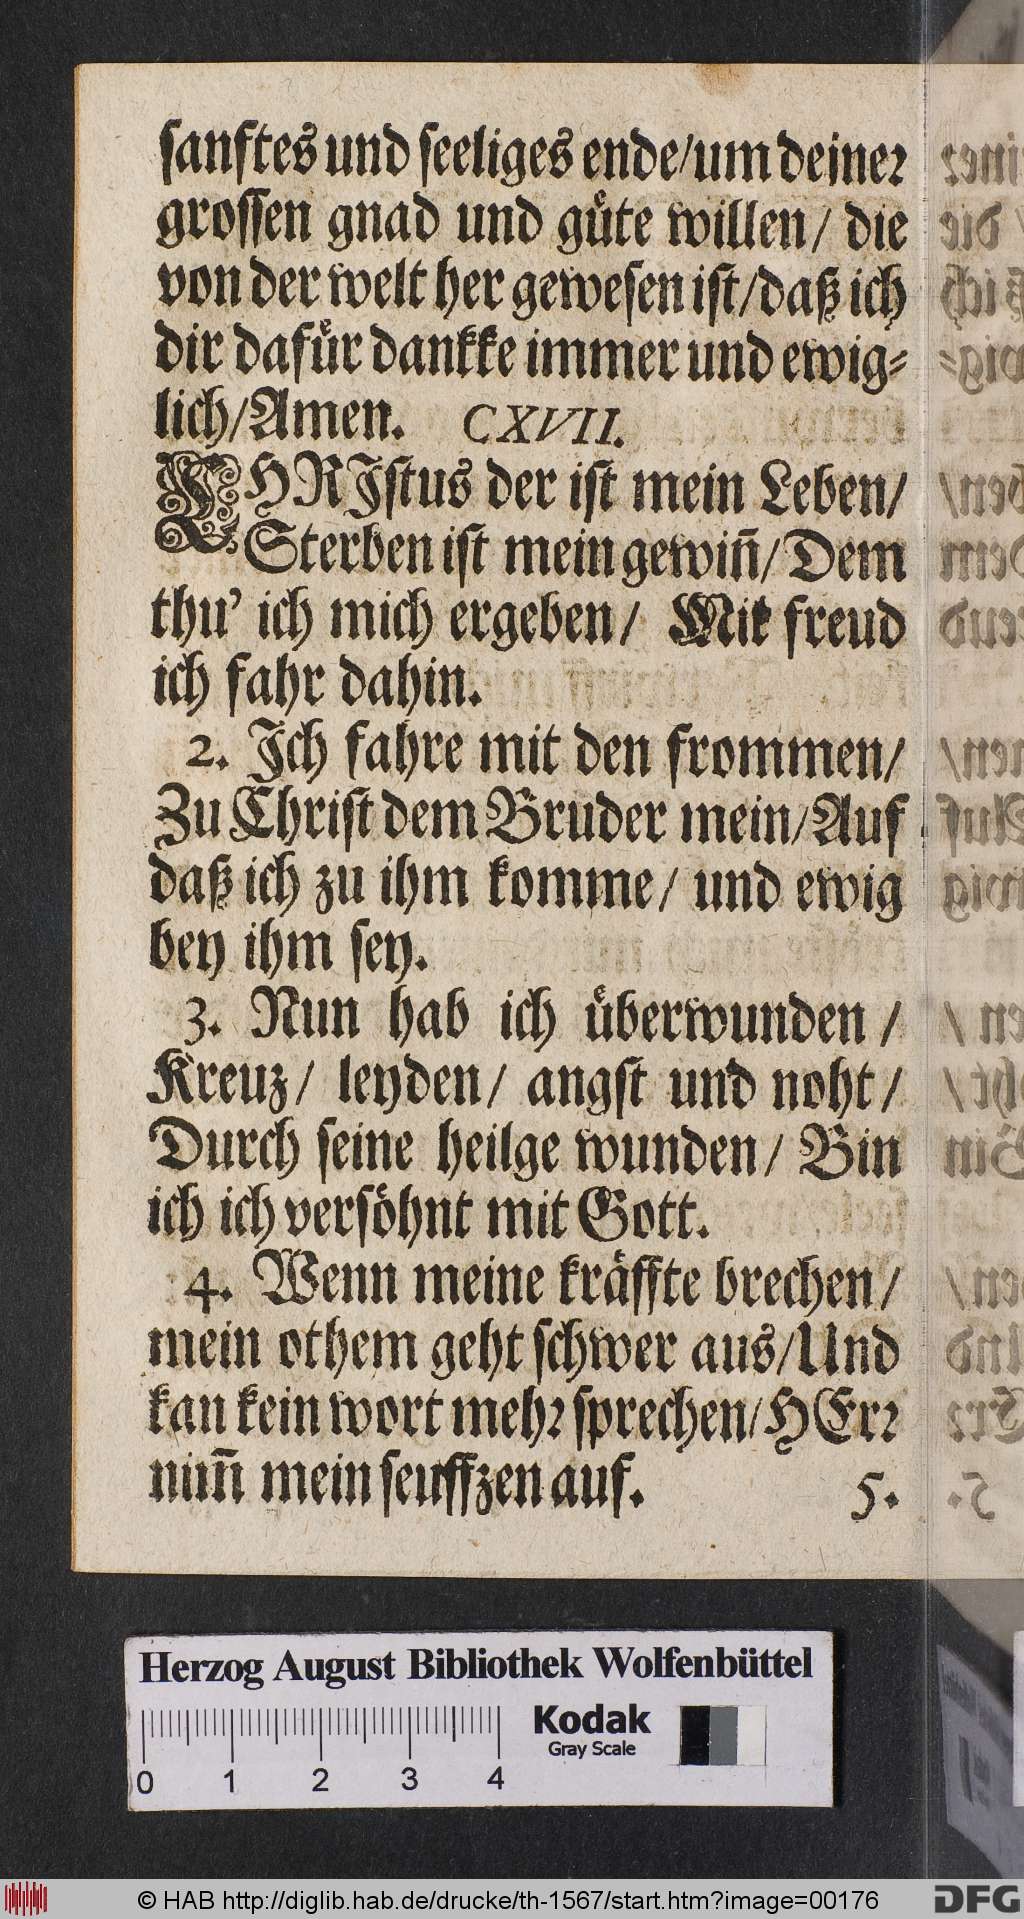 sanftes und seeliges ende/um deiner
grossen gnad und gůte willen/ die
von der welt her gewesen ist/daß ich
dir dafůr dankke immer und ewig=
lich/Amen. CXVII.
CHRIstus der ist mein Leben/
Sterben ist mein gewiñ/Dem
thu' ich mich ergeben/ Mit freud
ich fahr dahin.
2. Ich fahre mit den frommen/
Zu Christ dem Bruder mein/Auf
daß ich zu ihm komme/ und ewig
bey ihm sey.
3. Nun hab ich ůberwunden /
Kreuz/ leyden/ angst und noht/
Durch seine heilge wunden/ Bin
ich ich versöhnt mit Gott.
4. Wenn meine kräffte brechen/
mein othem geht schwer aus/Und
kan kein wort mehr sprechen/HErr
nim̄ mein seuffzen auf. 5.
Herzog August Bibliothek Wolfenbüttel
Kodak
Gray Scale
0 1 2 3 4
© HAB http://diglib.hab.de/drucke/th-1567/start.htm?image=00176
DFG